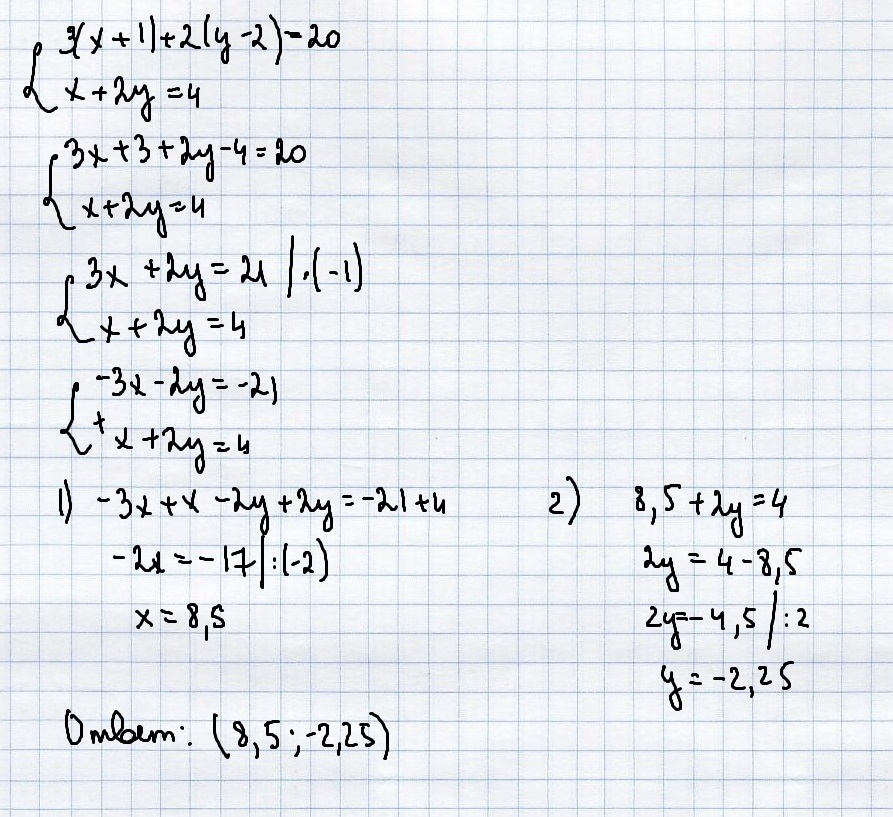 3(x+1)+2(y-2)=20
x+2y=4
3x+3+2y-4=20
x+2y=4
3x+2y=21 |·(-1)
x+2y=4
-3x-2y=-21
+ x+2y=4
1) -3x+x-2y+2y=-21+4
-2x=-17|:(-2)
x=8,5
2) 8,5+2y=4
2y=4-8,5
2y=-4,5 |:2
y=-2,25
Ответ: (8,5;-2,25)